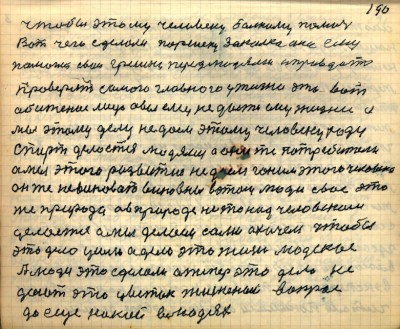 190
чтобы этому человеку больному помочь
Вот чего сделали порошки Закалка она ему
поможет свои ермини перед людями оправдать
проверять самого главного у жизни это вот
обитание мицо овы ему не дать ему жизни а
мы этому делу не даем этому человеку ходу
Спирт делается людями а они же потребители
а мы этого развитие не даем гоним этого человека
он же не виноват виновны в этом люди свое это
же природа а в природе нет над человеком
делается а мы делаем сами а хочем чтобы
это дело ушло а дело это жизнь людское
А люди это сделали а теперь это дело не
делают это цветок жизненый вопрос
до еще какой в людях